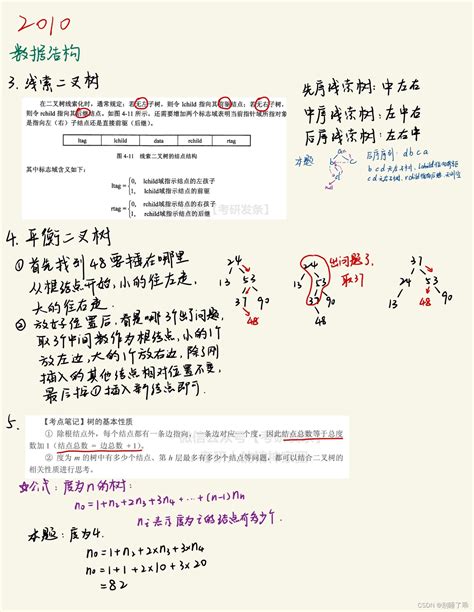 2010
数据结构
3. 线索二叉树
在二叉树线索化时，通常规定：若无左子树，则令 lchild 指向其前驱结点；若无右子树，
则令 rchild 指向其后继结点。如图 4-11 所示，还需要增加两个标志域表明当前指针域所指对象
是指向左（右）子结点还是直接前驱（后继）。
ltag lchild data rchild rtag
图 4-11 线索二叉树的结点结构
其中标志域含义如下：
ltag = { 0, lchild域指示结点的左孩子
1, lchild域指示结点的前驱
rtag = { 0, rchild域指示结点的右孩子
1, rchild域指示结点的后继
【考研发条】
先序线索树：中左右
中序线索树：左中右
后序线索树：左右中
本题
a
b
c
d
后序序列：d b c a
4. 平衡二叉树
① 首先找到48要插在哪里
从根结点开始，小的往左走，
大的往右走.
② 放好位置后，看是哪3个出了问题，
取3个中间数作为根结点，小的1个
放左边，大的1个放右边，除了刚
插入的其他结点相对位置不变，
最后按①插入新结点即可.
24
13 53
37 90
48
24
13 53
37 90
48
出问题了，
取37
24
13 53
37 90
48
5.
【考点笔记】树的基本性质
① 除根结点外，每个结点都有一条边指向，一条边对应一个度，因此结点总数等于总度
数加 1（结点总数 = 边总数 +1）。
② 度为 m 的树中有多少个结点、第 h 层最多有多少个结点等问题，都可以结合二叉树的
相关性质进行思考。
公式：度为n的树：
n₀=1+n₂+2n₃+3n₄+···+(n-1)nₙ
nᵢ表示度为i的结点有多少个.
本题：度为4.
n₀=1+n₂+2×n₃+3×n₄
n₀=1+1+2×10+3×20
=82
CSDN